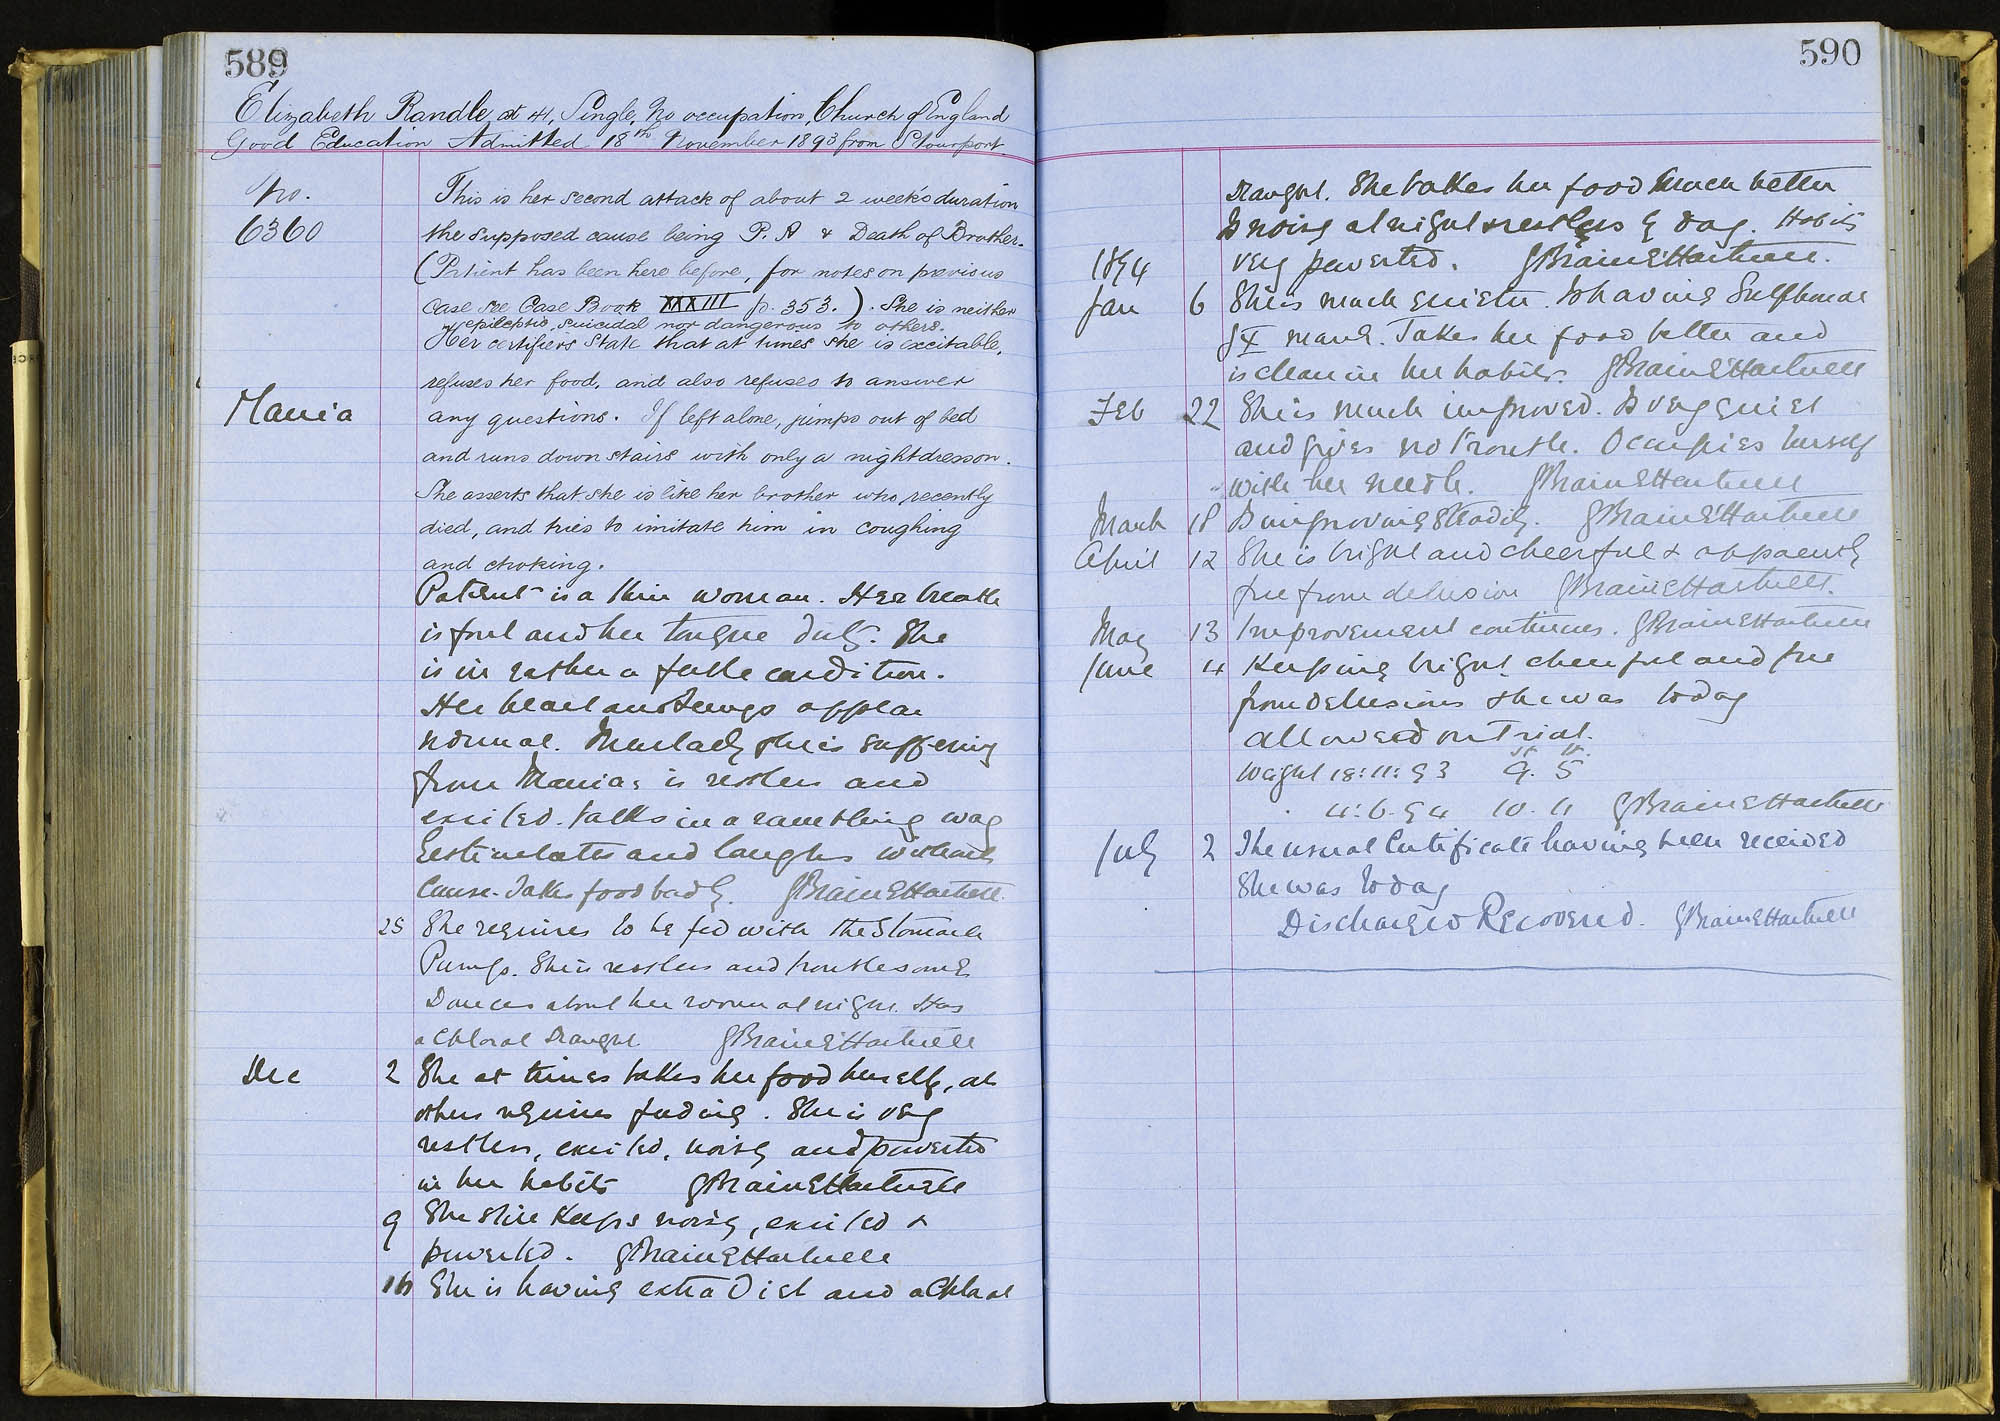 589
Elizabeth Randle, æt 41, Single, No occupation, Church of England
Good Education Admitted 18th November 1893 from Stourport.
No.
6360
This is her second attack of about 2 weeks' duration
the supposed cause being P. A & Death of Brother.
(Patient has been here before, for notes on previous
case see Case Book XXXIII p. 353.). She is neither
epileptic, suicidal nor dangerous to others.
Her certifiers state that at times she is excitable,
refuses her food, and also refuses to answer
Mania
any questions. If left alone, jumps out of bed
and runs down stairs with only a nightdress on.
She asserts that she is like her brother who, recently
died, and tries to imitate him in coughing
and choking.
Patient is a thin woman. Her breath
is foul and her tongue dirty. She
is in rather a feeble condition.
Her heart and lungs appear
normal. Mentally she is suffering
from Mania: is restless and
excited. talks in a rambling way
Gesticulates and laughs without
Cause. Takes food badly. GBraineHartnell.
25 She requires to be fed with the Stomach
Pump. She is restless and troublesome
Dances about her room at night. Has
a Chloral Draught. GBraineHartnell
Dec 2 She at times takes her food herself, at
others requires feeding. She is very
restless, excited, noisy and perverted
in her habits GBraineHartnell
9 She still keeps noisy, excited &
perverted. GBraineHartnell
16 She is having extra Diet and a Chloral
590
Draught. She takes her food much better
Is noisy at night & restless by day. Habits
very perverted. GBraineHartnell.
1894
Jan 6 She is much quieter. Is having Sulphonal
gr X mane. Takes her food better and
is clean in her habits. GBraineHartnell
Feb 22 She is much improved. Is very quiet
and gives no trouble. Occupies herself
with her needle. GBraineHartnell
March 18 Is improving steadily. GBraineHartnell
April 12 She is bright and cheerful & apparently
free from delusion GBraineHartnell.
May 13 Improvement continues. GBraineHartnell
June 4 Keeping bright, cheerful and free
from delusions she was today
allowed on Trial.
st lb
Weight 18:11:93 9. 5
4:6.94 10. 11 GBraineHartnell
July 2 The usual Certificate having been received
She was today
Discharged Recovered. GBraineHartnell